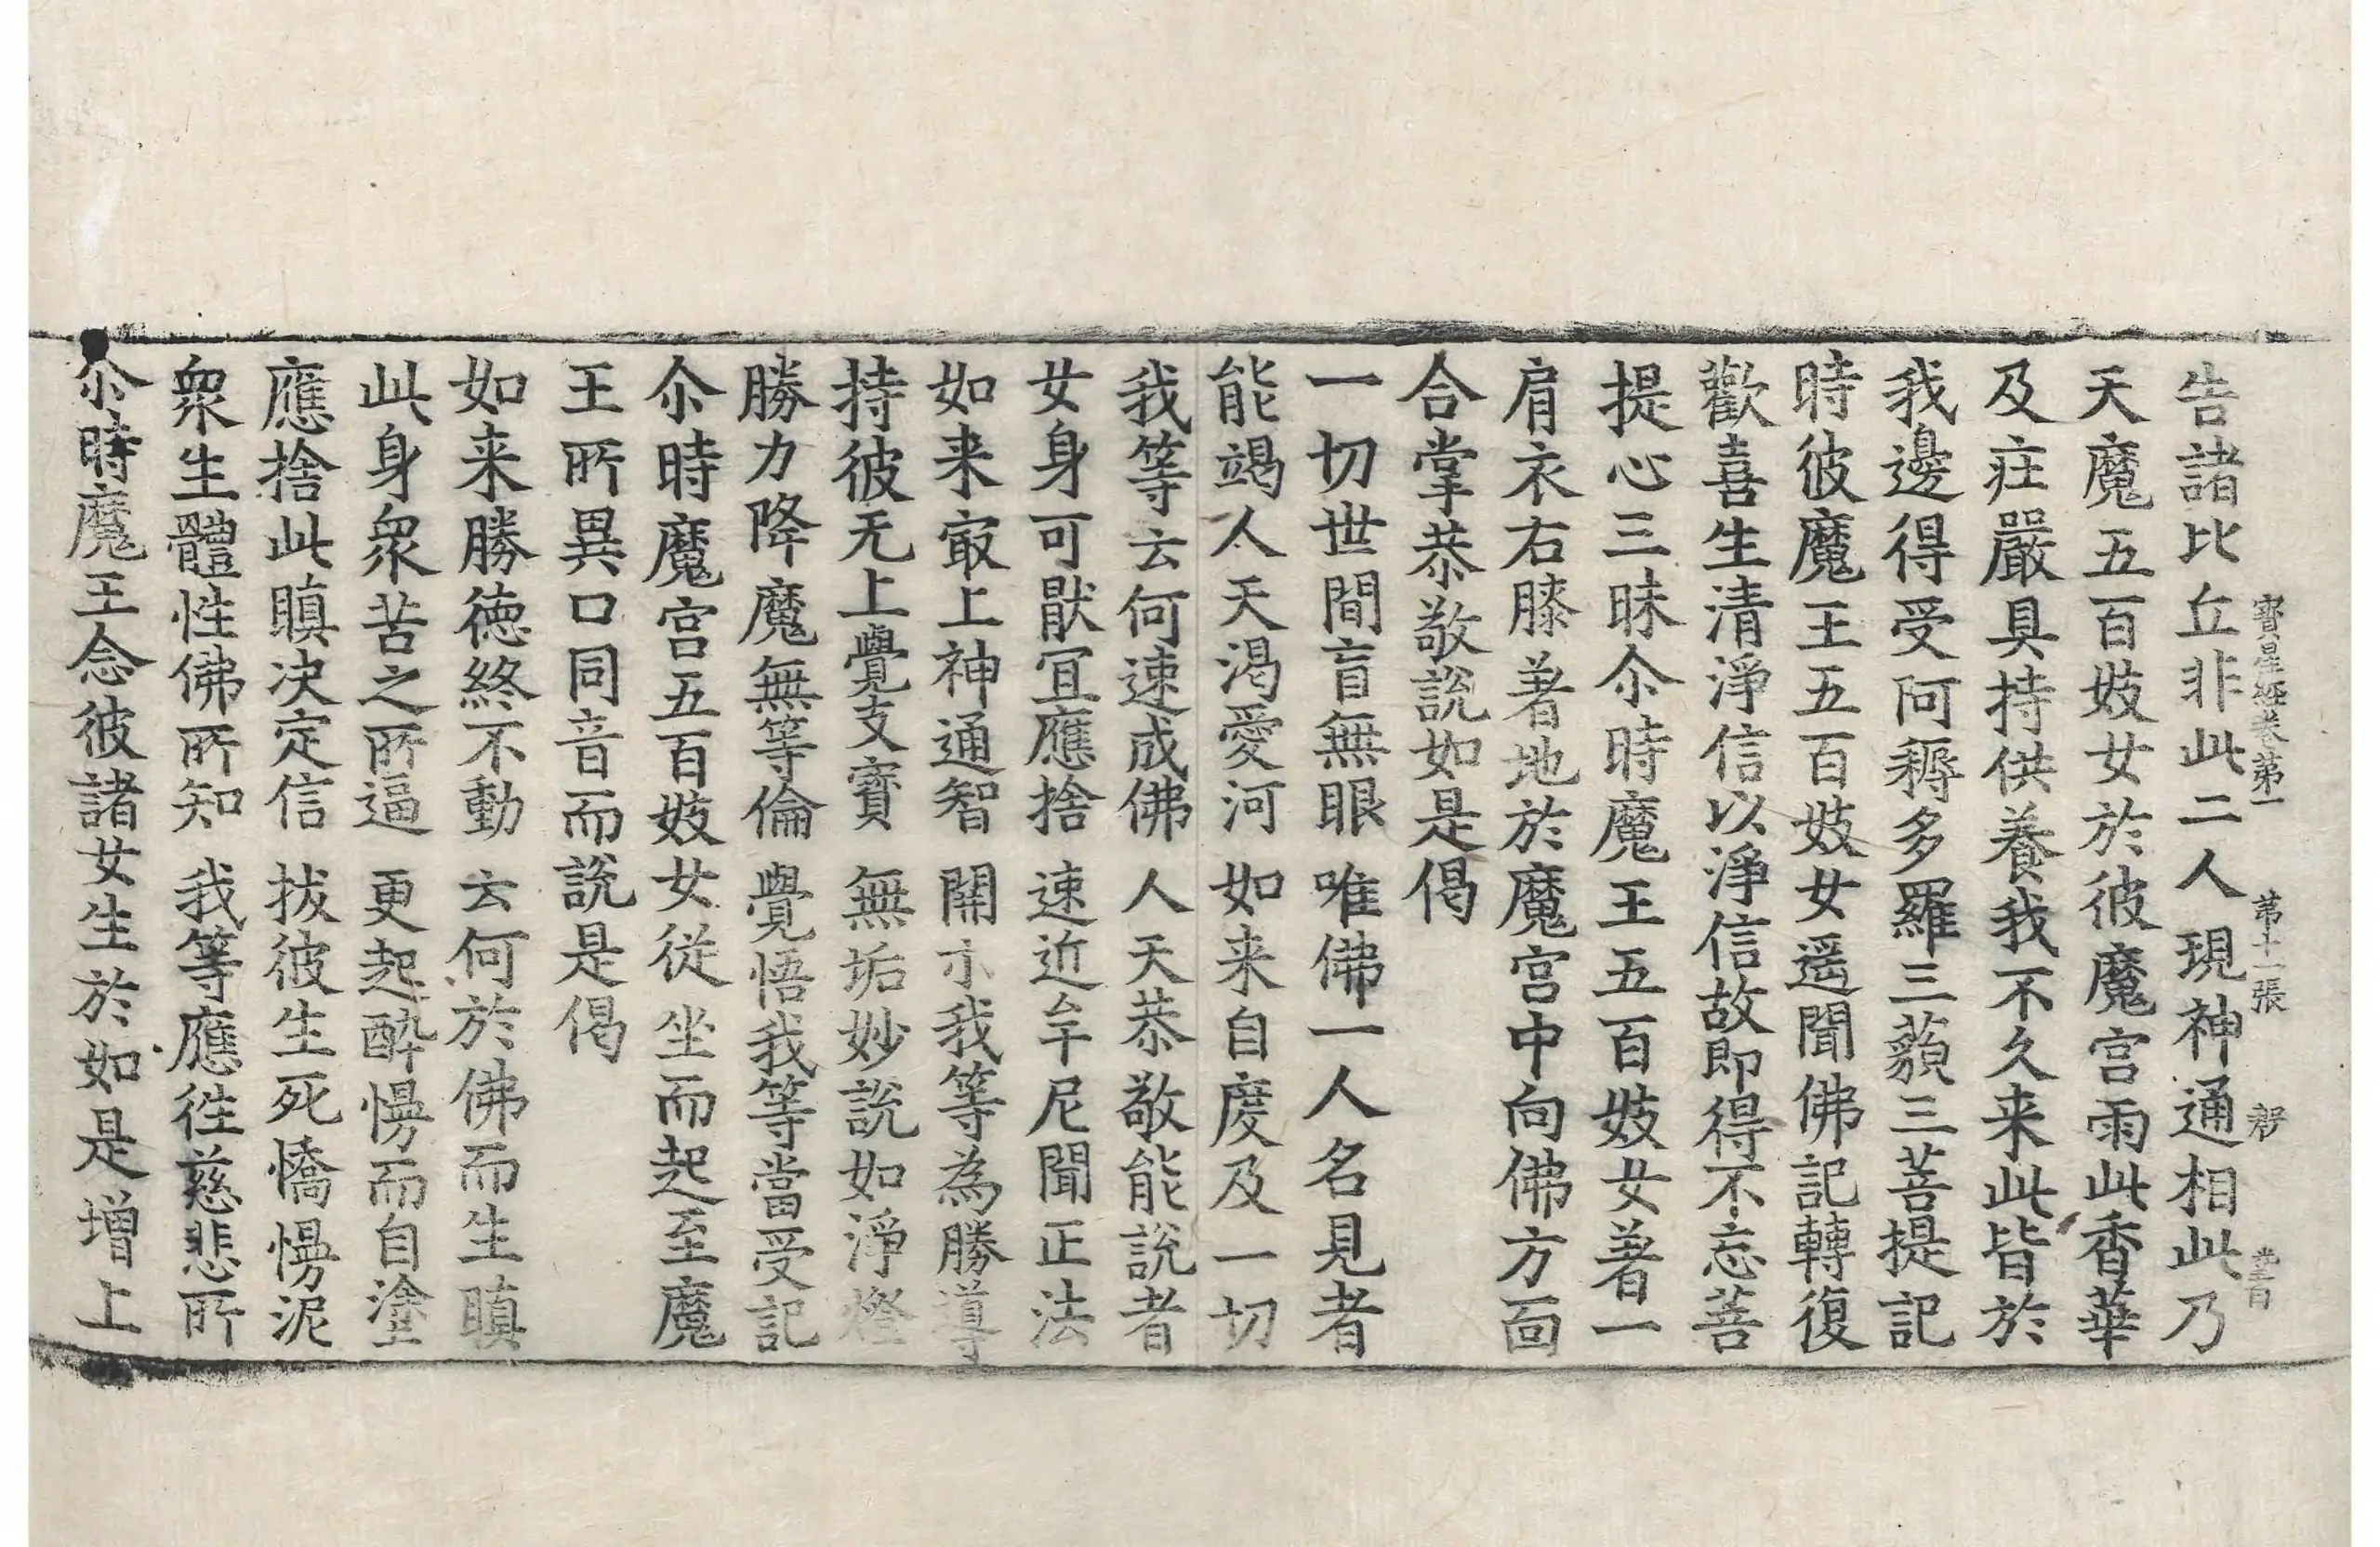 寶星經卷第一 第十一張
告諸比丘非此二人現神通相此乃
天魔五百妓女於彼魔宮雨此香華
及㽵嚴具持供養我不久来此皆於
我邊得受阿耨多羅三藐三菩提記
時彼魔王五百妓女遥聞佛記轉復
歡喜生清淨信以淨信故即得不忘菩
提心三昧尒時魔王五百妓女著一
肩衣右膝著地於魔宮中向佛方面
合掌恭敬說如是偈
一切世間盲無眼 唯佛一人名見者
能竭人天渴愛河 如来自度及一切
我等云何速成佛 人天恭敬能說者
女身可猒冝應捨 速近牟尼聞正法
如来㝡上神通智 開示我等為勝導
持彼无上覺支寶 無垢妙說如淨燈
勝力降魔無等倫 覺悟我等當受記
尒時魔宮五百妓女從坐而起至魔
王所異口同音而說是偈
如来勝德終不動 云何於佛而生瞋
此身衆苦之所逼 更起醉慢而自塗
應捨此瞋决定信 拔彼生死憍慢泥
衆生體性佛所知 我等應往慈悲所
尒時魔王念彼諸女生於如是增上